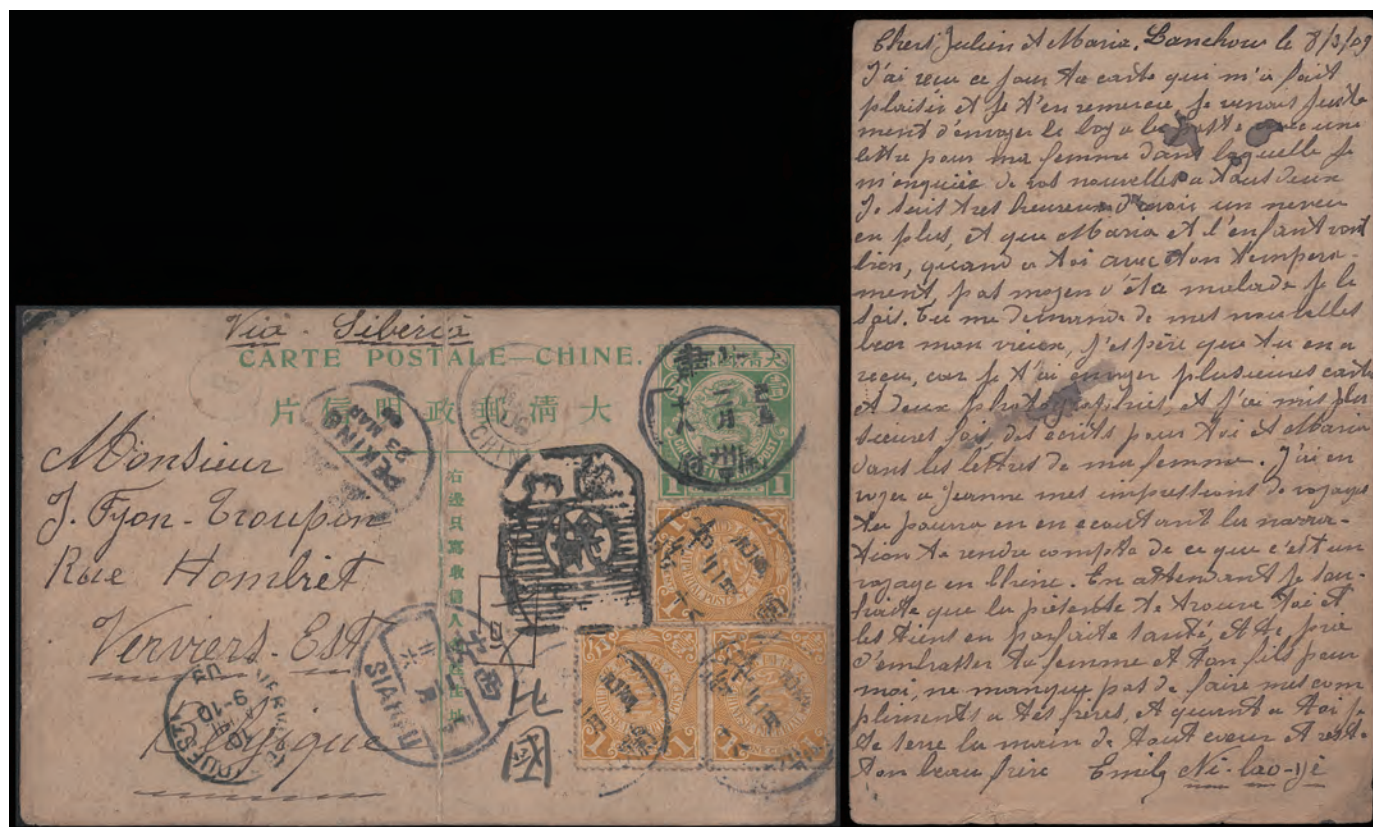 Via - Siberia
CARTE POSTALE—CHINE.
大清郵政明信片
右邊只寫收信人名姓住址
Monsieur
J. Fyon-Troupin
Rue Hombiet
Verviers-Est
Belgique
PEKING
23 MAR
09
SIANFU
CHINESE IMPERIAL POST
1 1
1 1
1 1
1 1
Chers Julien et Maria, Lanchow le 8/3/09
J'ai recu ce jour ta carte qui m'a fait
plaisir et je t'en remercie, je venais juste
ment d'envoyer le boy a la poste avec une
lettre pour ma femme dans laquelle je
m'enquiée de vos nouvelles a tous deux
Je suis tres heureux d'avoir un neveu
en plus, et que Maria et l'enfant vont
bien, quand a toi avec ton tempera-
ment, pas moyen d'éta malade je le
sais. Tu me demande de mes nouvelles
bear mon vieux, j'espère que tu en a
recu, car je t'ai envoyer plusieures carte
et deux photographies, et j'ai mis plu
sieures fois des ecrits pour toi et Maria
dans les lettres de ma femme. J'ai en
voyer a Jeanne mes impressions de voyage
tu pourra en en ecoutant la narra-
tion te rendre compte de ce que c'est un
voyage en Chine. En attendant je sou-
haite que la présente te trouve toi et
les tiens en parfaite santé, et te prie
d'embrasser ta femme et ton fils pour
moi, ne manque pas de faire mes com
pliments a tes frères, et quant a toi je
te serre la main de tout cœur et reste
ton beau frère Emile Ni-lao-yé